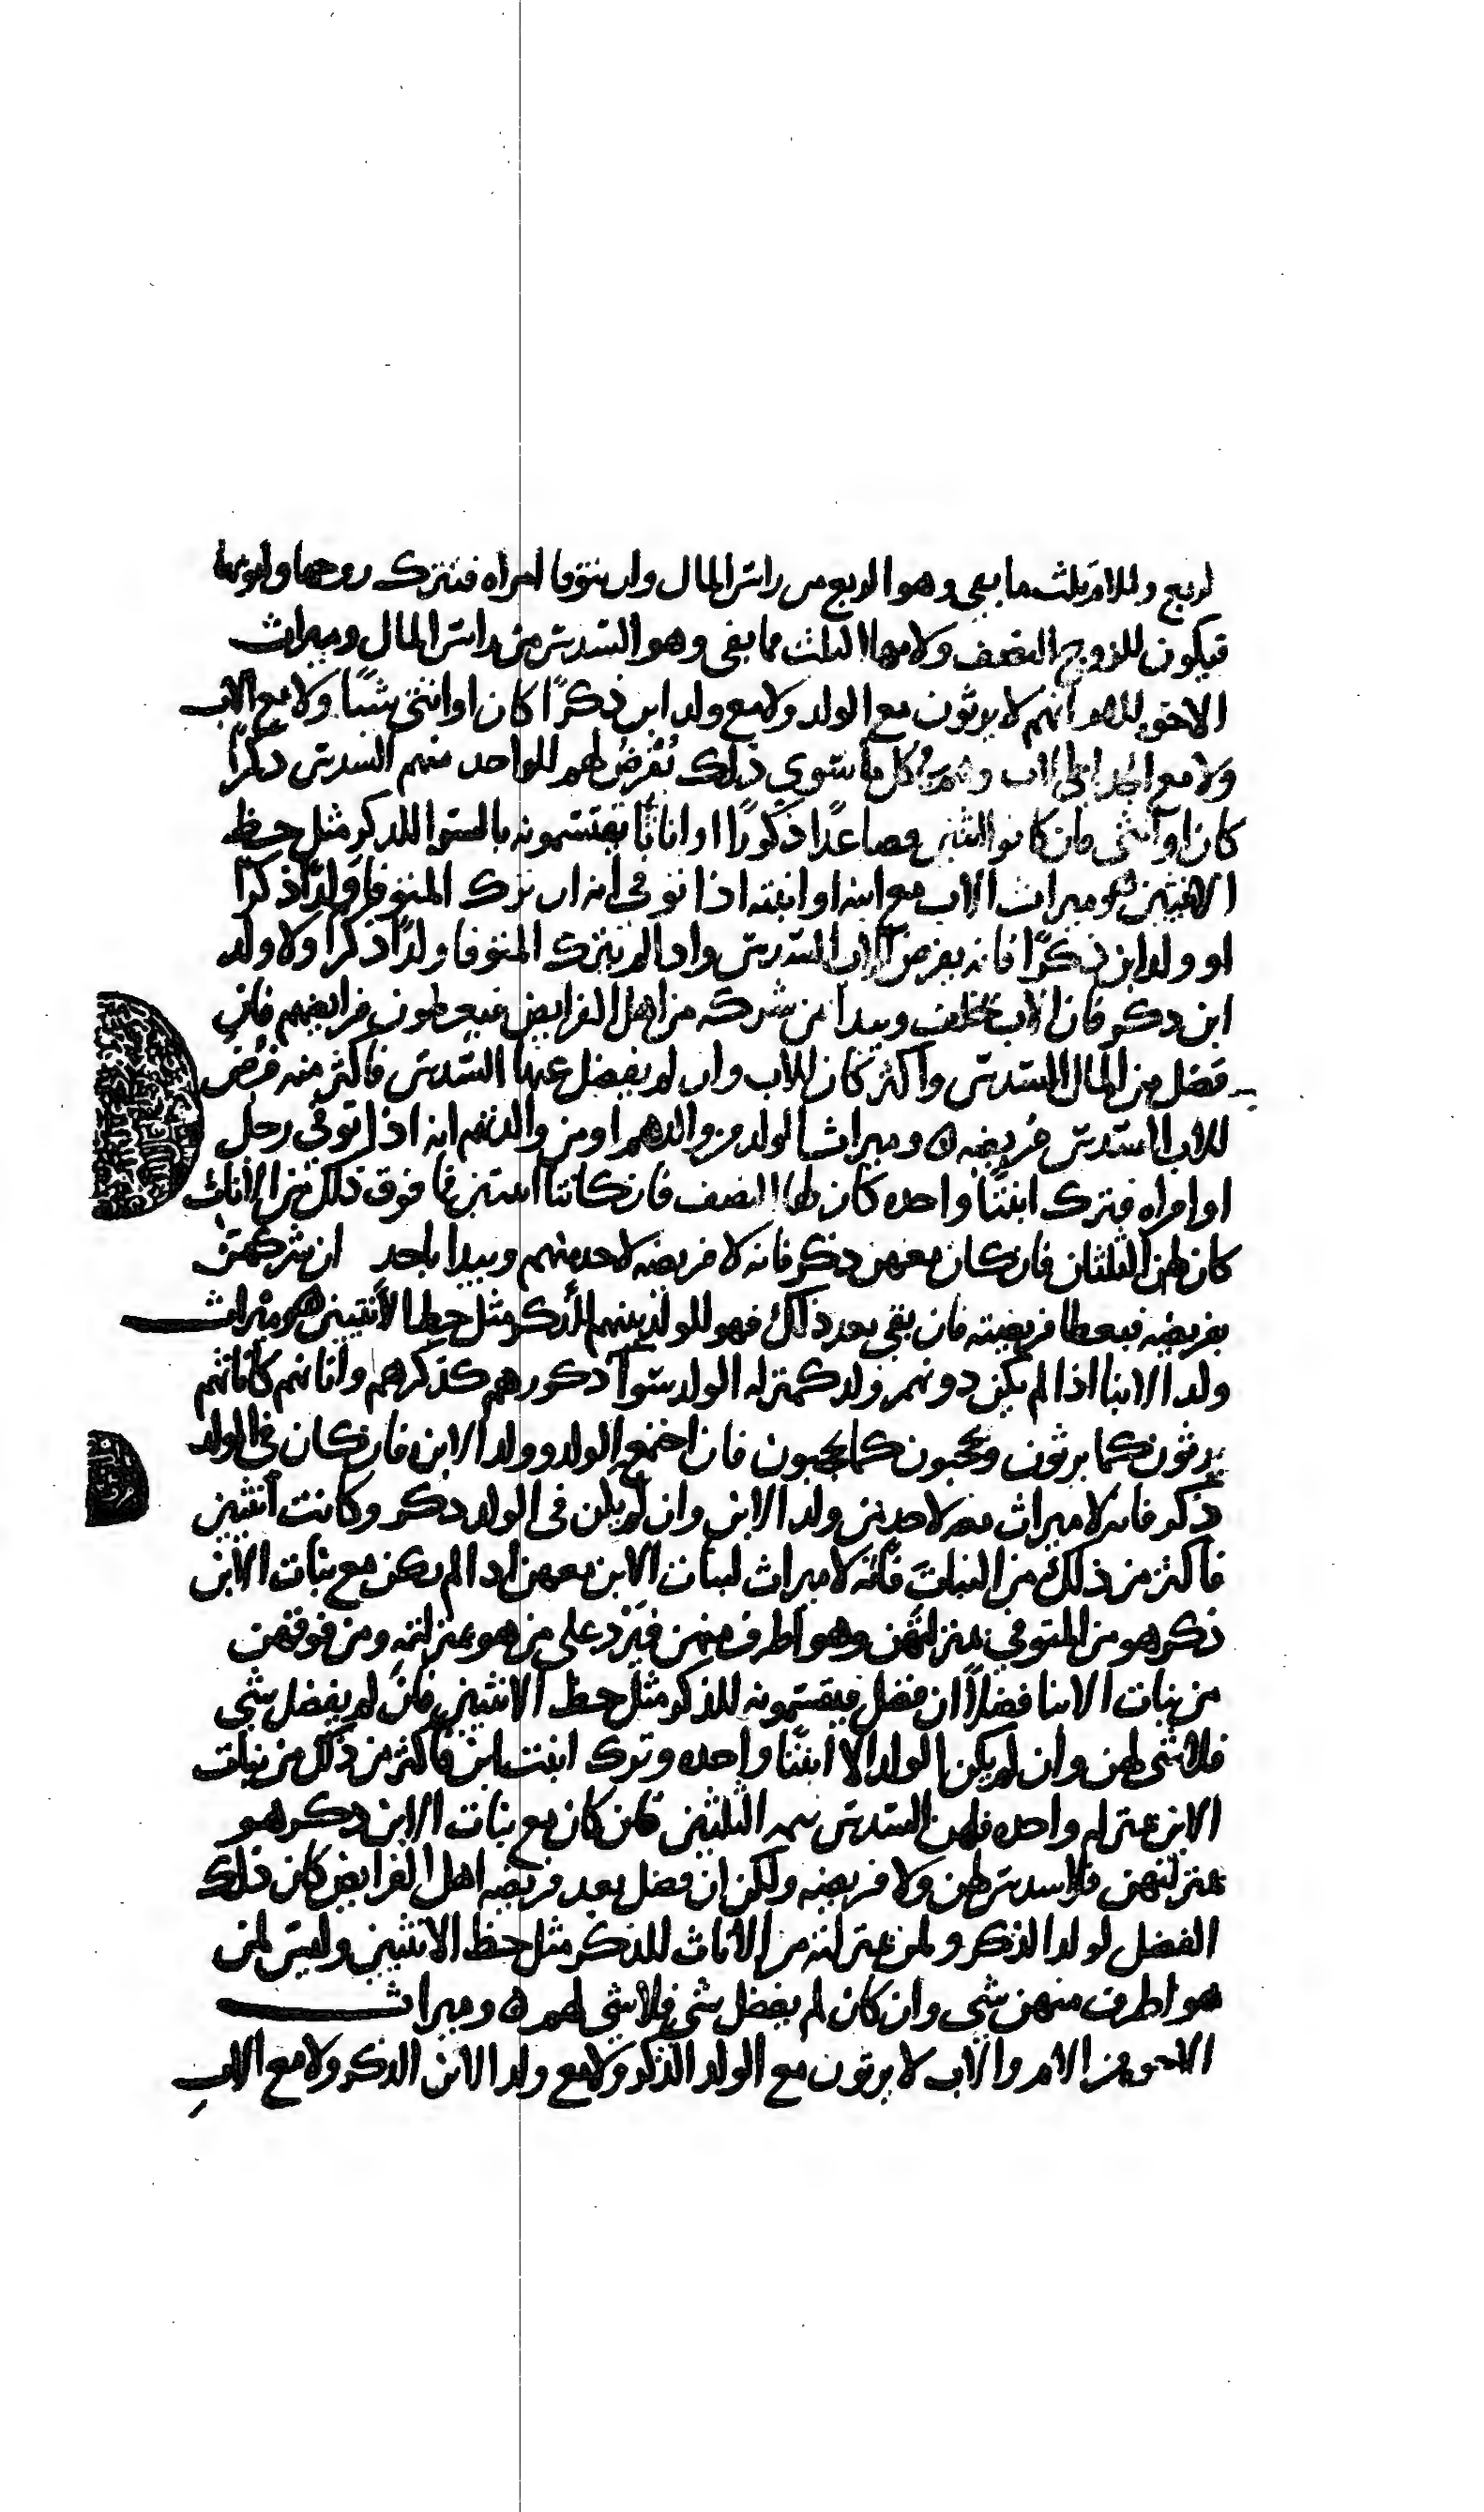 الربع وللام ثلث ما بقي وهو الربع من راس المال وان تتوفا امراه فتترك زوجها وابويها
فيكون للزوج النصف ولامها الثلث مما بقى وهو السدس من راس المال وميراث
الاخوه للام انهم لا يرثون مع الولد ولا مع ولد ابن ذكرًا كان او انثى شيًا ولا مع الاب
ولا مع الجد ابي الاب وهم في كل ما سوى ذلك يُفرضُ لهم للواحد منهم السدس ذكرًا
كان او انثى فان كانوا اثنين فصاعدًا ذكورًا او اناثًا يقتسمونه بالسوا للذكر مثل حظ
الانثيين وميراث الاب مع ابنه او ابنته اذا توفى انه ان ترك المتوفا ولدًا ذكرًا
او ولد ابن ذكرًا فانه يفرض للاب السدس واذا لم يترك المتوفا ولدًا ذكرًا ولا ولد
ابن ذكر فان الاب يخلف ويبدا من شركه من اهل الفرايض فيعطون فرايضهم فان
فضل من المال السدس واكثر كان للاب وان لم يفضل عنها السدس فاكثر منه فرض
للاب السدس فريضه ه وميراث الولد من والدهم او من والدتهم انه اذا توفى رجل
او امراه فترك ابنتًا واحده كان لها النصف فان كانتا اثنتين فما فوق ذلك من الاناث
كان لهن الثلثان فان كان معهن ذكر فانه لا فريضه لاحد منهم ويبدا باحد ان شركهن
بفريضه فيعطا فريضته فان بقي بعد ذلك فهو للولد بينهم للذكر مثل حظ الانثيين ه وميراث
ولد الابنا اذا لم يكن دونهم ولد كمنزله الولد سوآ ذكورهم كذكرهم واناثهم كاناثهم
يرثون كما يرثون ويحجبون كما يحجبون فان اجتمع الولد وولد الابن فان كان في الولد
ذكر فانه لا ميراث معه لاحد من ولد الابن وان لم يكن في الولد ذكر وكانت انثيين
فاكثر من ذلك من البنات فانه لا ميراث لبنات الابن معهن اذا لم يكن مع بنات الابن
ذكر هو من المتوفى بمنزلتهن وهو اطرف منهن فيرد على من هو بمنزلته ومن فوقهن
من بنات الابنا فضلاً ان فضل فيقتسمونه للذكر مثل حظ الانثيين فان لم يفضل شي
فلا شى لهن وان لم يكن الولد الا ابنتًا واحده وترك ابنت ابن فاكثر من ذلك من بنات
الابن بمنزله واحده فلهن السدس تتمه الثلثين فان كان مع بنات الابن ذكر هو
بمنزلتهن فلا سدس لهن ولا فريضه ولكن ان فضل بعد فريضه اهل الفرايض كان ذلك
الفضل لولد الذكر ولمن بمنزلته من الاناث للذكر مثل حظ الانثيين وليس لمن
هو اطرف منهن شي وان كان لم يفضل شي فلا شي لهم ه وميراث
الاخوه من الام والاب لا يرثون مع الولد الذكر ولا مع ولد الابن الذكر ولا مع الاب